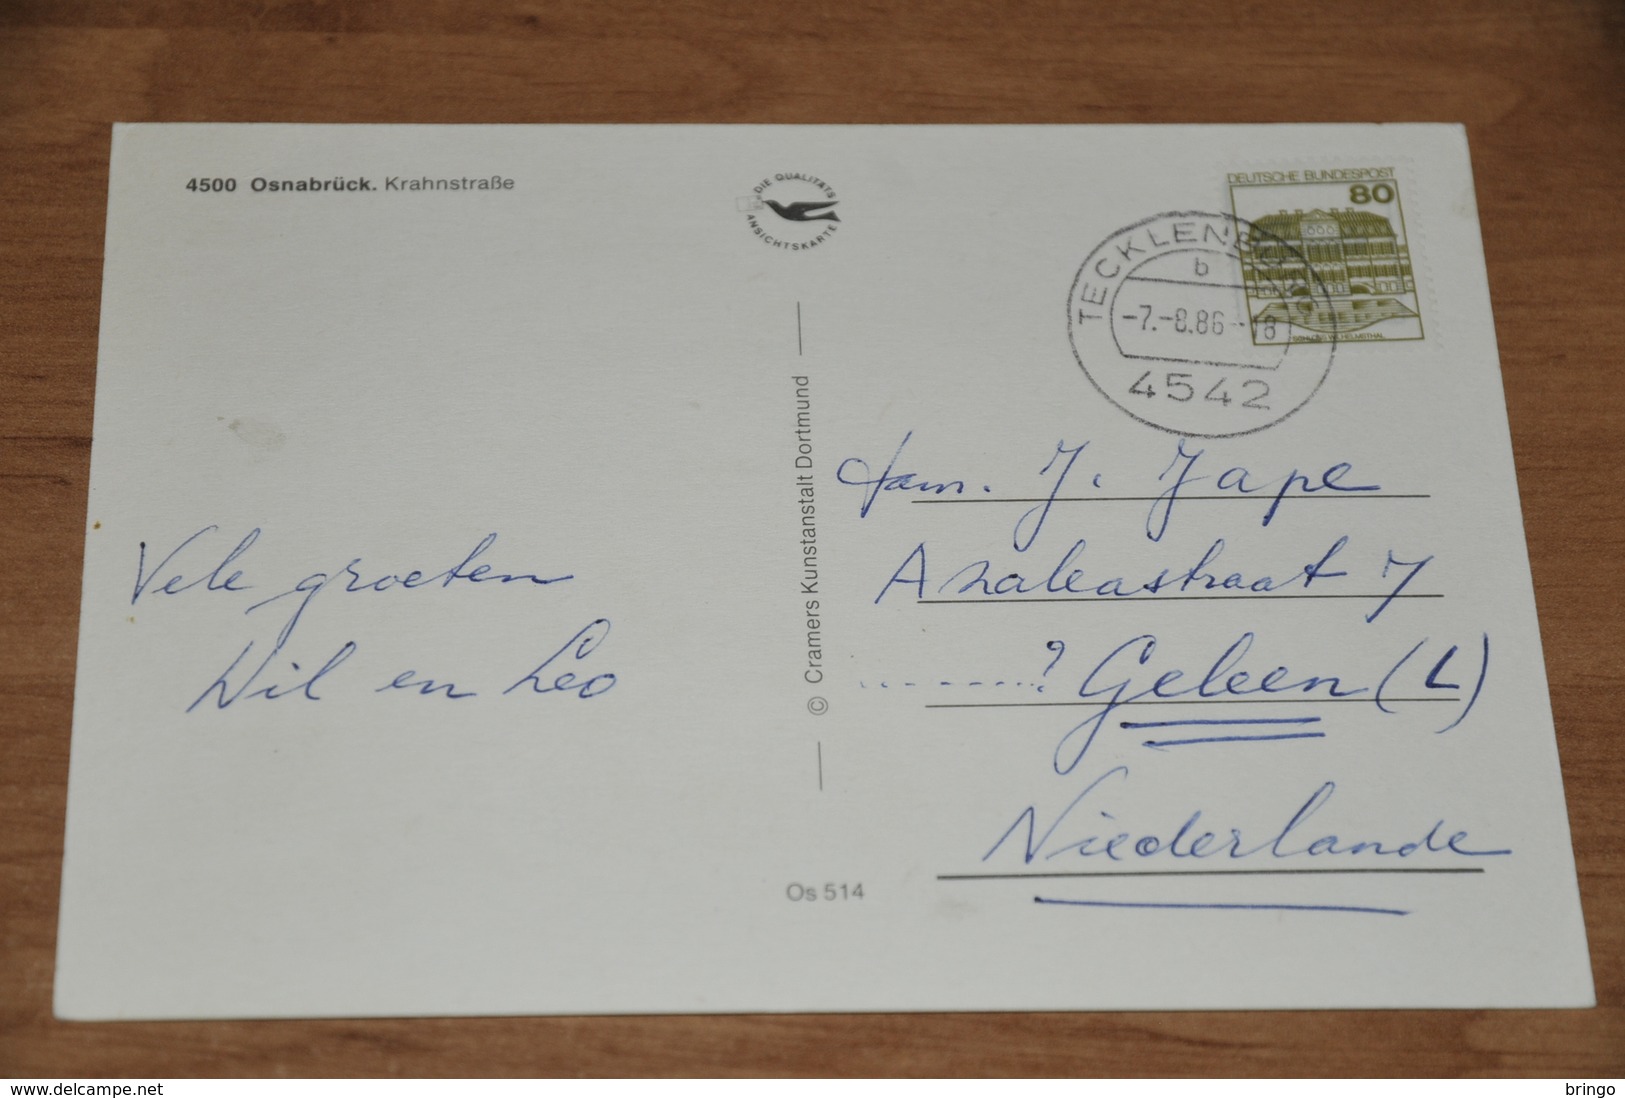 4500 Osnabrück. Krahnstraße
DIE QUALITÄTS
ANSICHTSKARTE
DEUTSCHE BUNDESPOST
80
SCHLOSS WILHELMSTHAL
TECKLENBURG
b
-7.-8.86--18
4542
Vele groeten
Wil en Leo
© Cramers Kunstanstalt Dortmund
Fam. J. Jape
Azaleastraat 7
.........? Geleen (L)
Niederlande
Os 514
delcampe.net
bringo